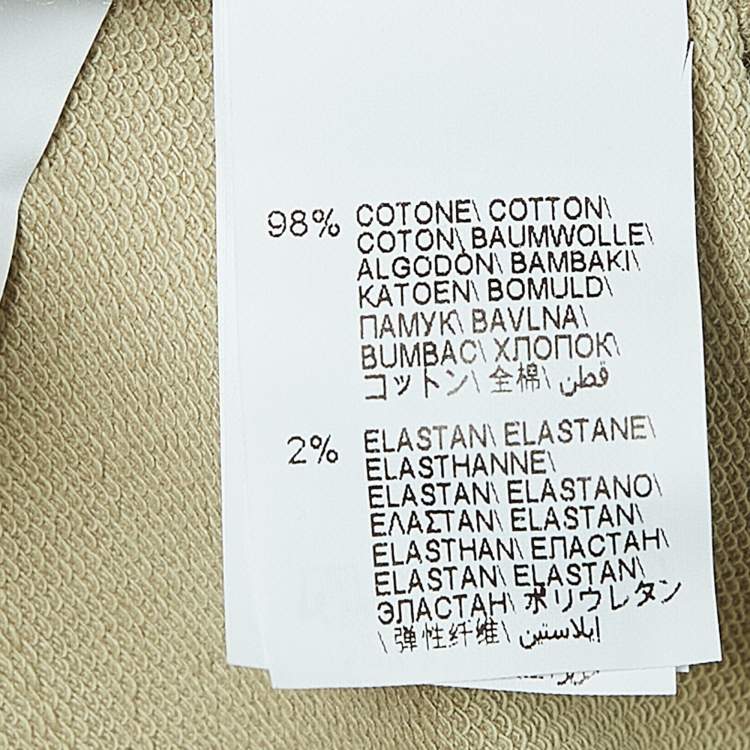 98% COTONE\ COTTON\
COTON\ BAUMWOLLE\
ALGODÓN\ BAMBAKI\
KATOEN\ BOMULD\
ПАМУК\ BAVLNA\
BUMBAC\ ХЛОПОК\
コットン\ 全棉\ قطن
2% ELASTAN\ ELASTANE\
ELASTHANNE\
ELASTAN\ ELASTANO\
ΕΛΑΣΤΑΝ\ ELASTAN\
ELASTHAN\ ЕЛАСТАН\
ELASTAN\ ELASTAN\
ЭЛАСТАН\ ポリウレタン
\ 弹性纤维\ إيلاستين